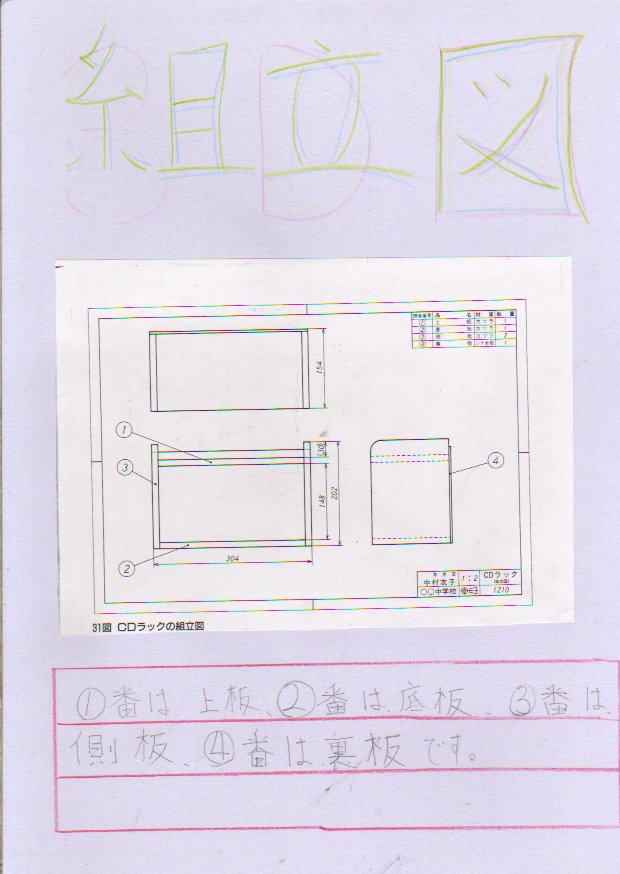 組立図
照合番号 品名 材質 数量
① 上板 カツラ 1
② 底板 カツラ 1
③ 側板 カツラ 2
④ 裏板 シナ合板 1
154
①
③
②
30
148
202
304
④
年月日
中村友子 1:2 CDラック
(組立図)
〇〇中学校 1210
31図 CDラックの組立図
①番は上板、②番は底板、③番は、
側板、④番は裏板です。